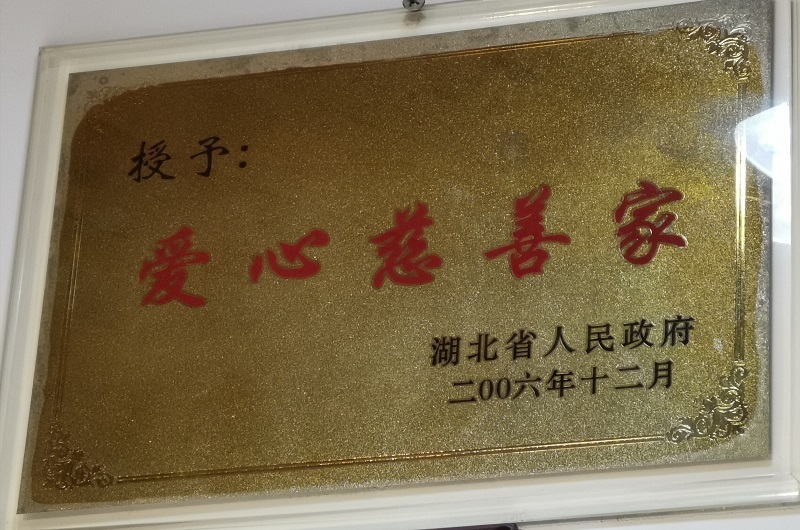 授予：
爱心慈善家
湖北省人民政府
二00六年十二月